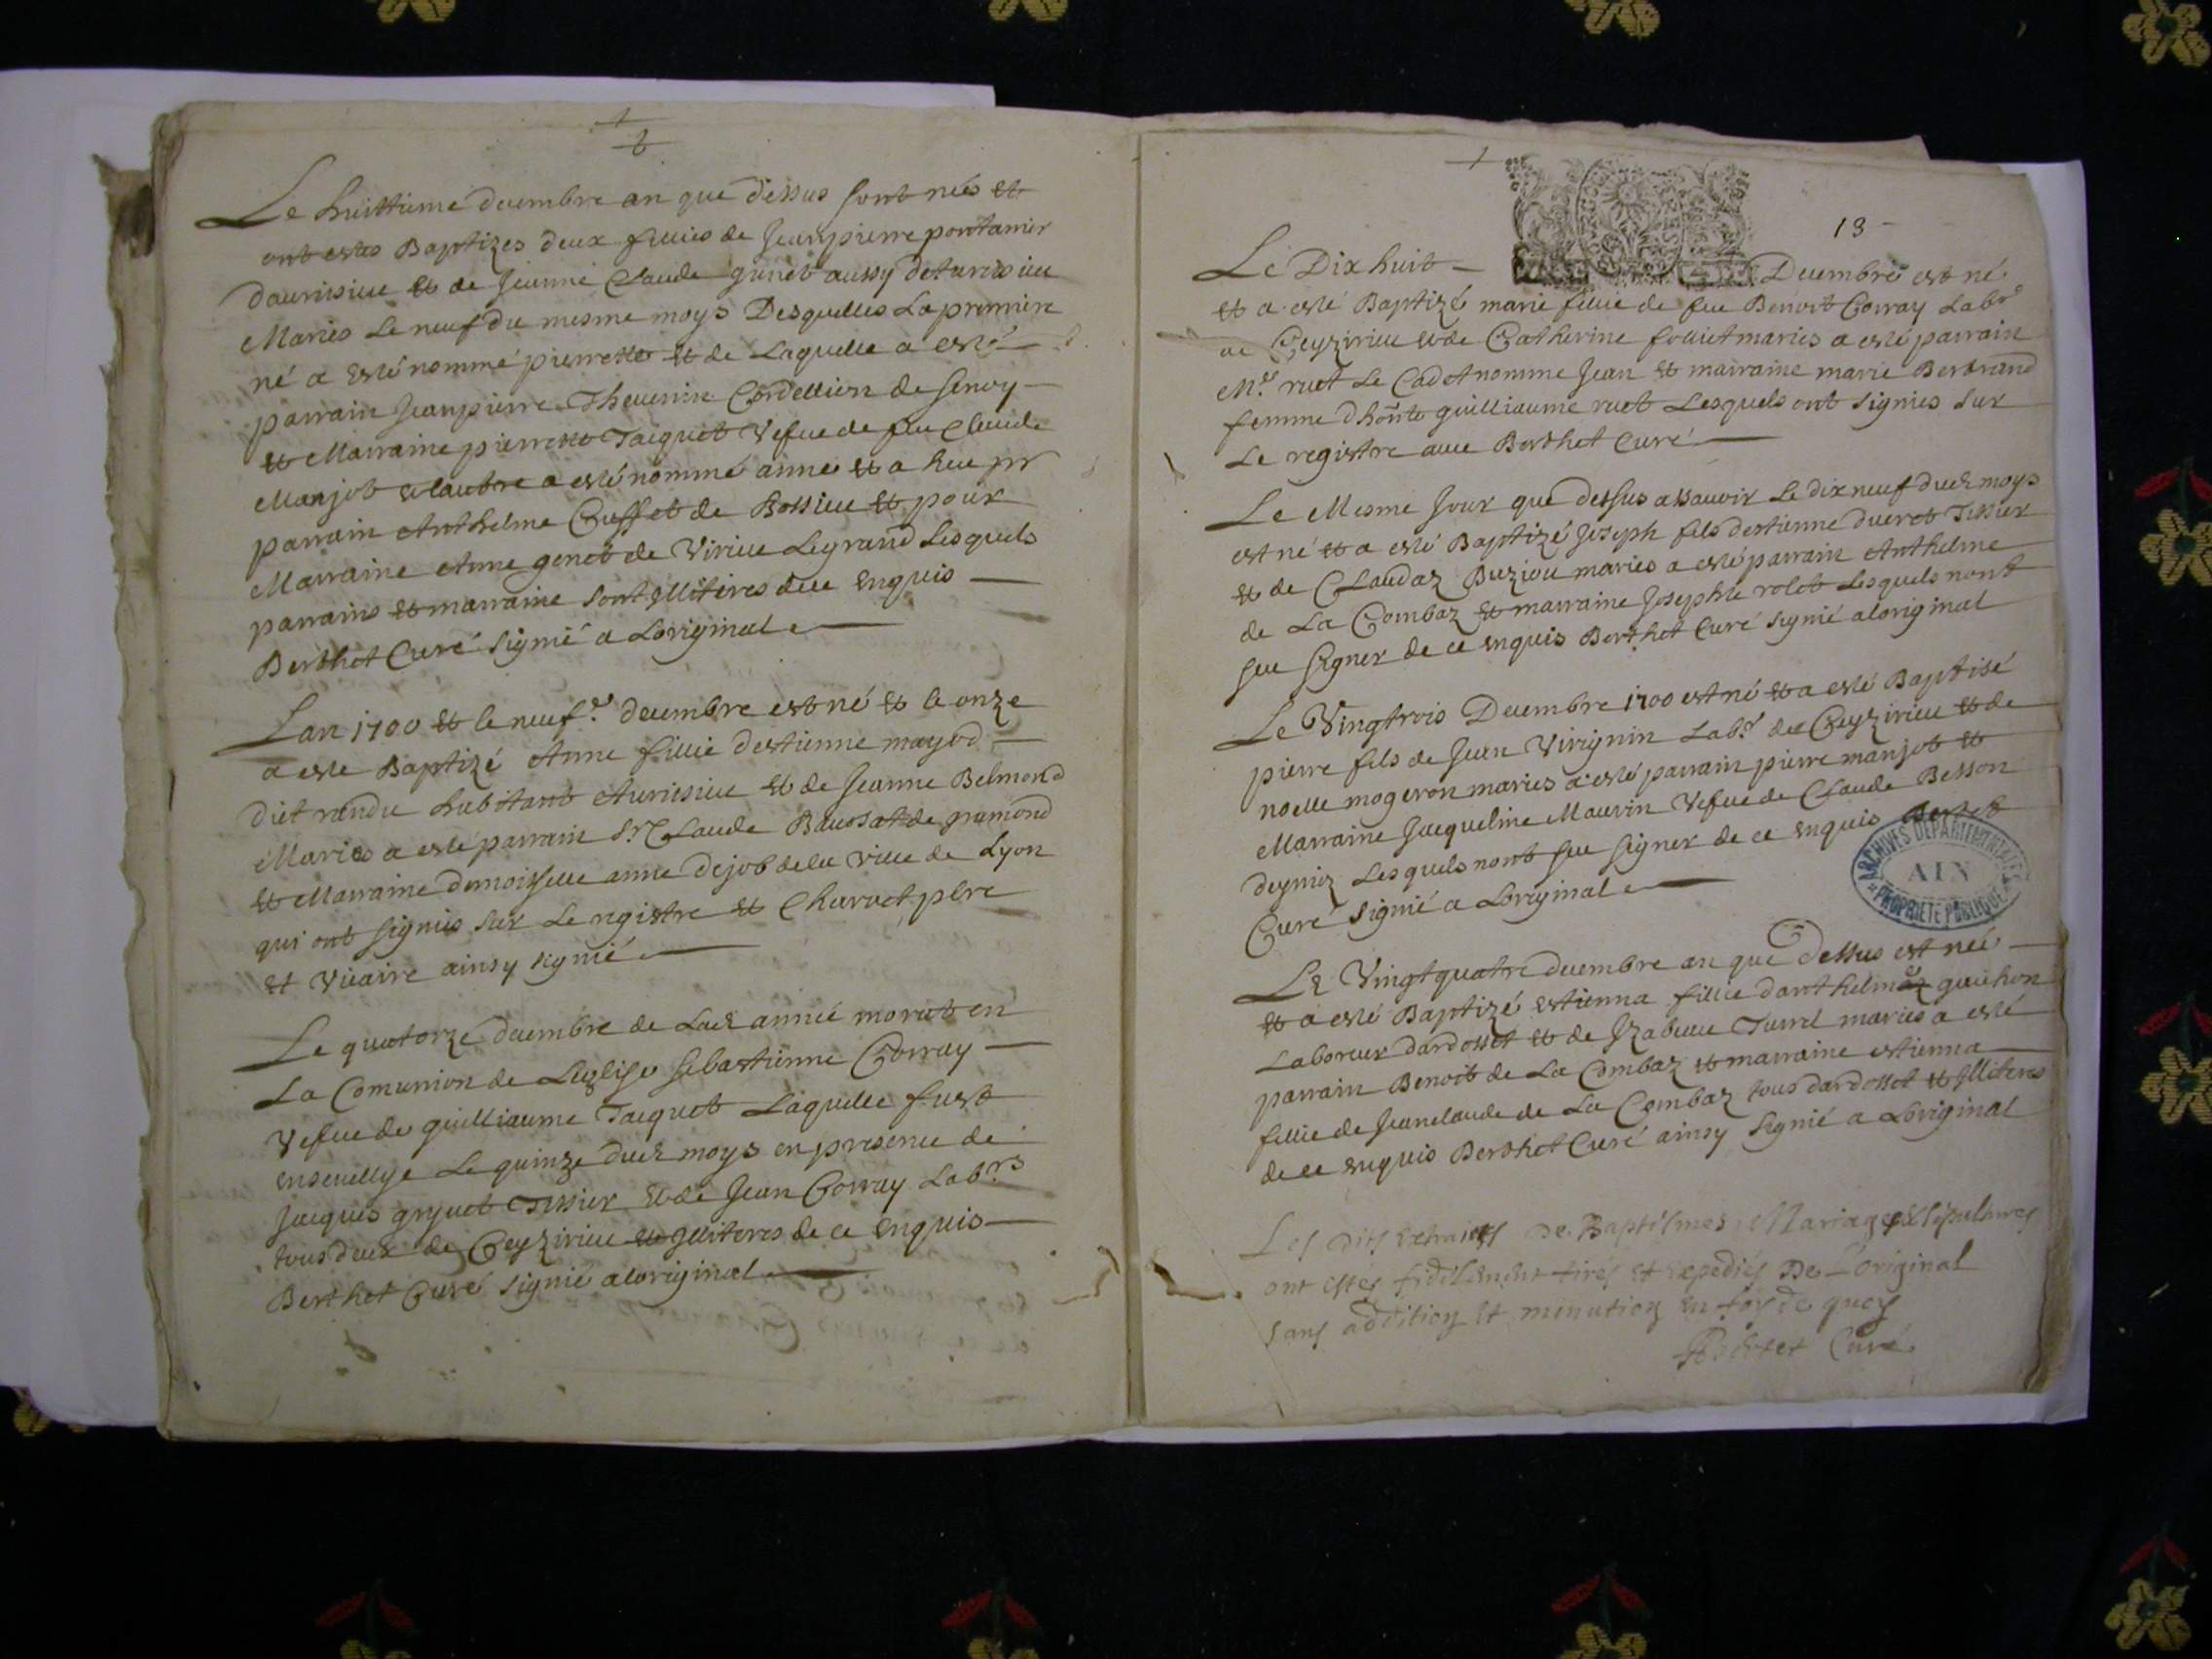 Le huittieme decembre an que dessus sont nées et
ont estes Baptizes deux fillies de Jeanpierre pontanier
daurisieu et de Jeanne Claude genet aussy
Maries Le neuf du mesme moys Desquelles La premiere
né a esté nommé pierrette et de Laquelle a esté
parrain Jeanpierre Thevenin Cordellier de
et Marraine pierrette Jacquet Vefue de feu Claude
Manjot et lautre a esté nommé anne et a heu pr
parrain Anthelme Cuffet de Bossieu et pour
Marraine Anne genet de Virieu Legrand Lesquels
parrains et marraine sont Illiteres de ce Enquis
Berthet Curé signié a Loriginal
Lan 1700 et le neuf.e decembre est né et le onze
a este Baptizé Anne fillie destienne mayod
diet habitant Aurisieu et de Jeanne Belmond
Maries a esté parrain Sr Claude Baussat de gramond
et Marraine demoisselle anne dejob de la Ville de Lyon
qui ont signies sur Le registre et Charvet pbre
et Vicaire ainsy signié
Le quatorze decembre de Lad année morut en
La Comunion de Leglise sebastienne Corray
Vefue de guilliaume Jacquet Laquelle fust
ensevellye Le quinze dud moys en presence de
Jacques Tissier et de Jean Corray Labrs
tous deux de Ceyzirieu et Illiteres de ce Enquis
Berthet Curé signié aloriginal
13
Le Dix huit Decembre est né
et a esté Baptizé marie fillie de feu Benoit Corray Labr
de Ceyzirieu et de Catherine folliet maries a esté parrain
Mr ruet Le Cadet nomme Jean et marraine marie Bertrand
femme dhonte guilliaume ruet Lesquels ont signies sur
Le registre avec Berthet Curé
Le Mesme Jour que dessus assavoir Le dix neuf dud moys
est né et a esté Baptizé Joseph fils destienne Tissier
et de Claudaz Buziou maries a esté parrain Anthelme
de La Combaz et marraine Josephte rolet Lesquels nont
sceu signer de ce enquis Berthet Curé signié aloriginal
Le Vingtrois Decembre 1700 est né et a esté Baptisé
pierre fils de Jean Virignin Labr de Ceyzirieu et de
noelle mogeron maries a esté parrain pierre manjot et
Marraine Jacqueline Maurin Vefue de Claude Besson
Lesquels nont sceu signer de ce enquis Berthet
Curé signié a Loriginal
ARCHIVES DEPARTEMENTALES
AIN
PROPRIETE PUBLIQUE
Le Vingtquatre decembre an que Dessus est née
et a esté Baptizé Estienna fillie danthelme guichon
Laboreur dardosset et de Izabelle maries a esté
parrain Benoit de La Combaz et marraine estienna
fillie de Jeanclaude de La Combaz tous dardosset et Illiteres
de ce enquis Berthet Curé ainsy signié a Loriginal
Les dits Extraicts De Baptesmes Mariages et sepultures
ont estes fidelement tirés et Expediés De Loriginal
sans addition et minution en foy de quoy
Berthet Curé